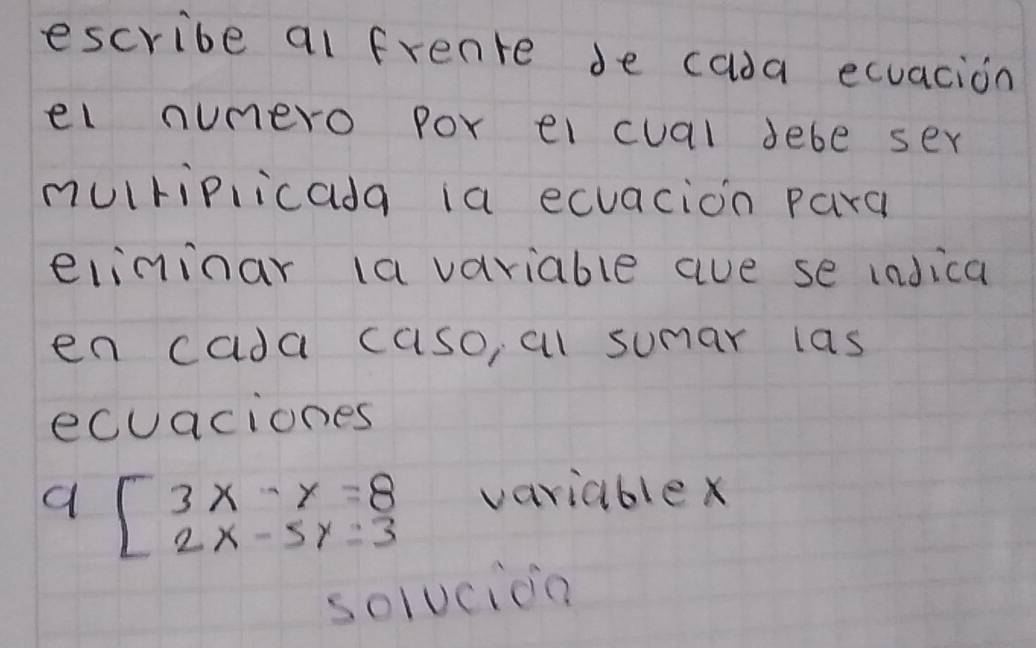 escribe al frente de cada ecuación
el numero por el cual debe ser
multiplicada la ecuación para
eliminar la variable que se indica
en cada caso, al sumar las
ecuaciones
a [ 3x - y = 8 variable x
2x - 5y = 3
solución